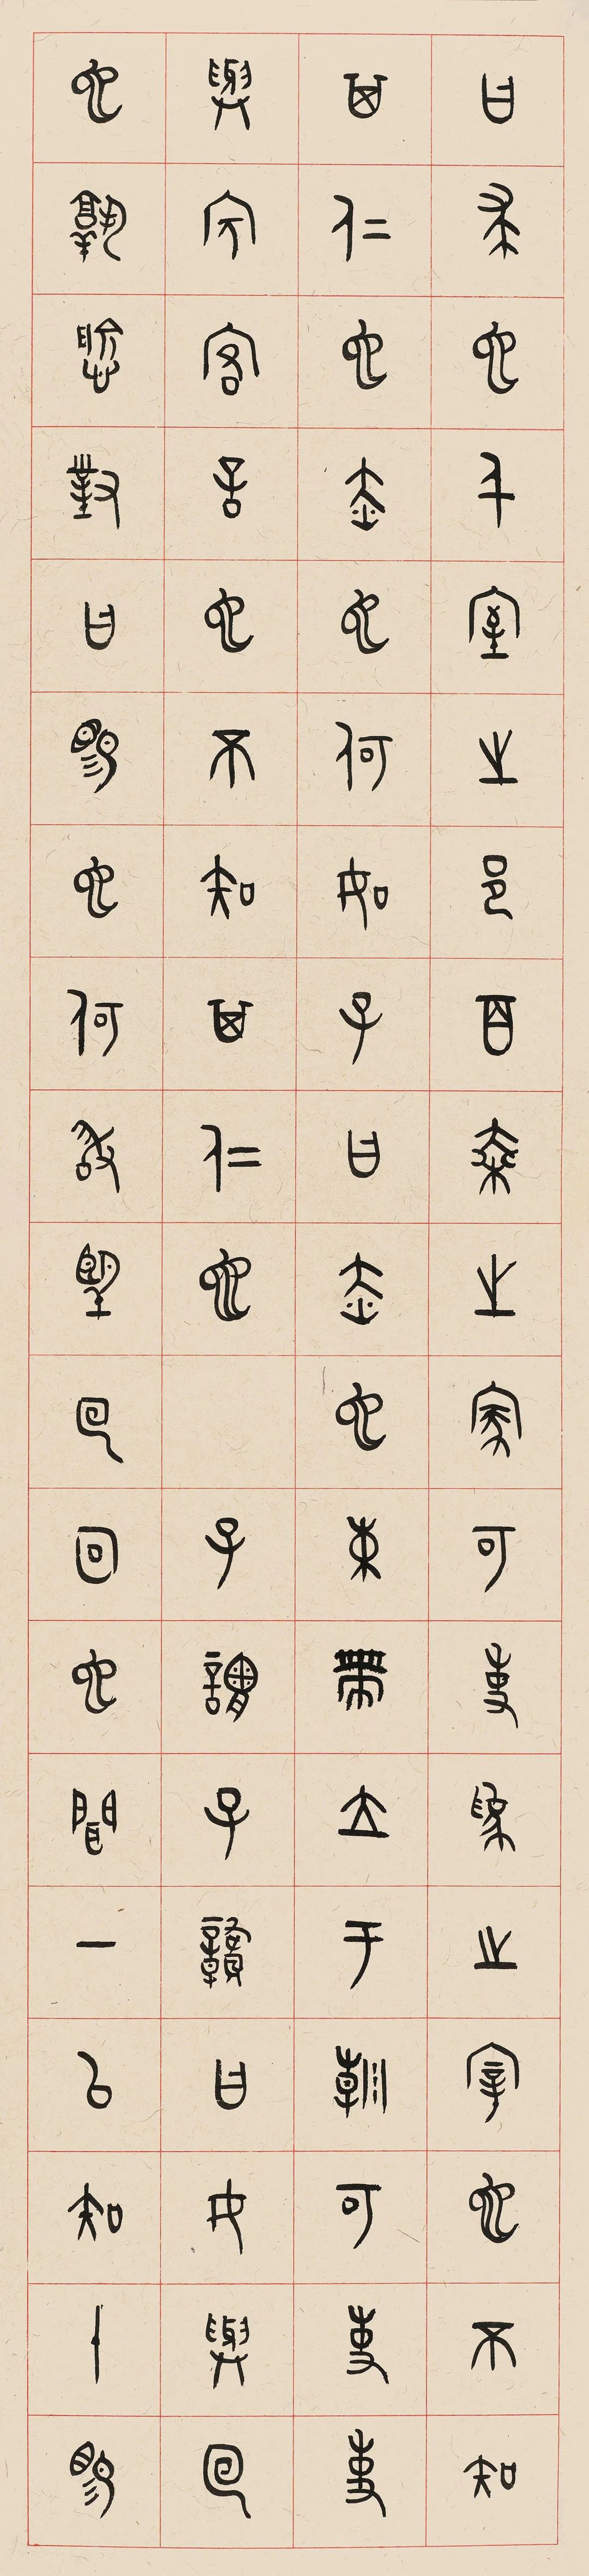 曰求也千室之邑百乘之家可使為之宰也不知
其仁也赤也何如子曰赤也束帶立于朝可使使
與賓客言也不知其仁也 子謂子贛曰女與回
也孰愈對曰賜也何敢望回回也聞一以知十賜